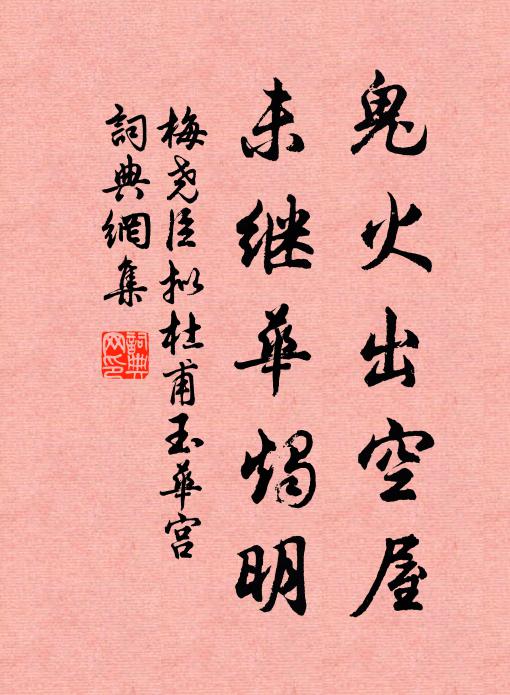 鬼火出空屋
未继華燭明
梅尧臣拟杜甫玉華宫
詞典網集
詞典网印